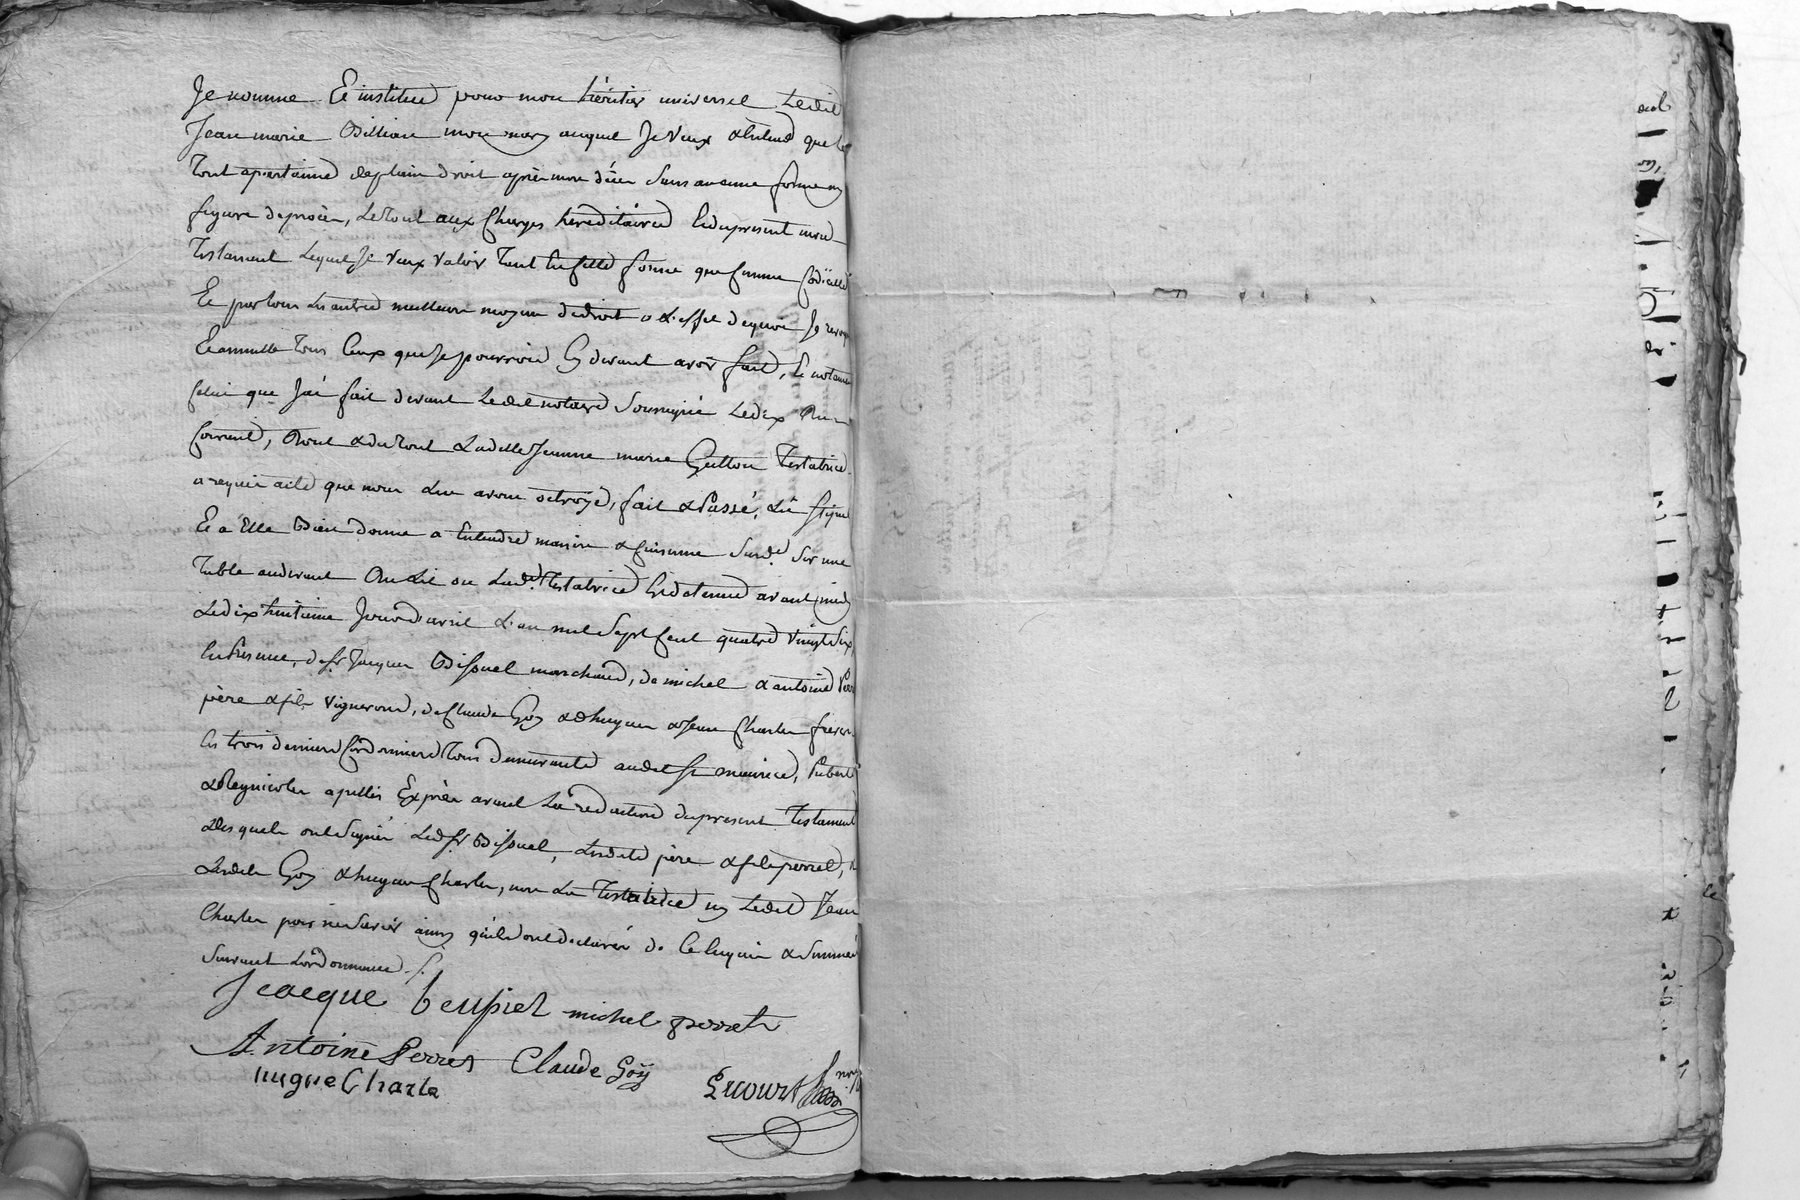 Je nomme Et institue pour mon héritier universel Ledit
Jean marie Billian mon mary auquel Je veux & Entend que le
Tout apartienne deplein droit après mon décés Sans aucune forme ny
figure deprocès, Le tout aux Charges hereditaires Et du present mon
Testament Lequel Je veux valoir Tant En telle forme que comme Codicille
Et par tous Les autres meilleurs moyens de droit a L'effet dequoi Je revoque
Et annulle Tous Ceux que Je pourrois Cy devant avoir fait, Et notament
celui que J'ai fait devant Ledit notaire Soussigné Ledix Du
Courant, Dont & du tout Ladite Jeanne marie Gutton Testatrice
a requis acte que nous Lui avons octroyé, fait & Passé, Lû
Et a Elle Bien donné a Entendre maison & Cuisine Sur une
Table audevant Du Lit ou Lade Testatrice Est detenue avant midy
Ledix huitieme Jour d'avril L'an mil Sept Cent quatre vingt Six,
En presence, de sr Jacques Bissuel marchand, de michel & antoine Perret
père & fils vignerons, de Claude Goy & d'hugues & Jean Charles freres
les trois derniers Cordonniers Tous demeurants audit St maurice,
& Regnicoles apellés Exprès avant La redaction du present Testament
Desquels ont Signé Ledit Sr Bissuel, Lesdits père & fils perret,
Lesdits Goy & hugues Charles, non La Testatrice ny Ledit Jean
Charles pour ne Savoir ainsy qu'ils ont declaré de Ce Enquis & Sommés
Suivant L'ordonnance ./.
Jcacque beusiel michel perret
Antoine Perret Claude Goÿ
hugue Charle